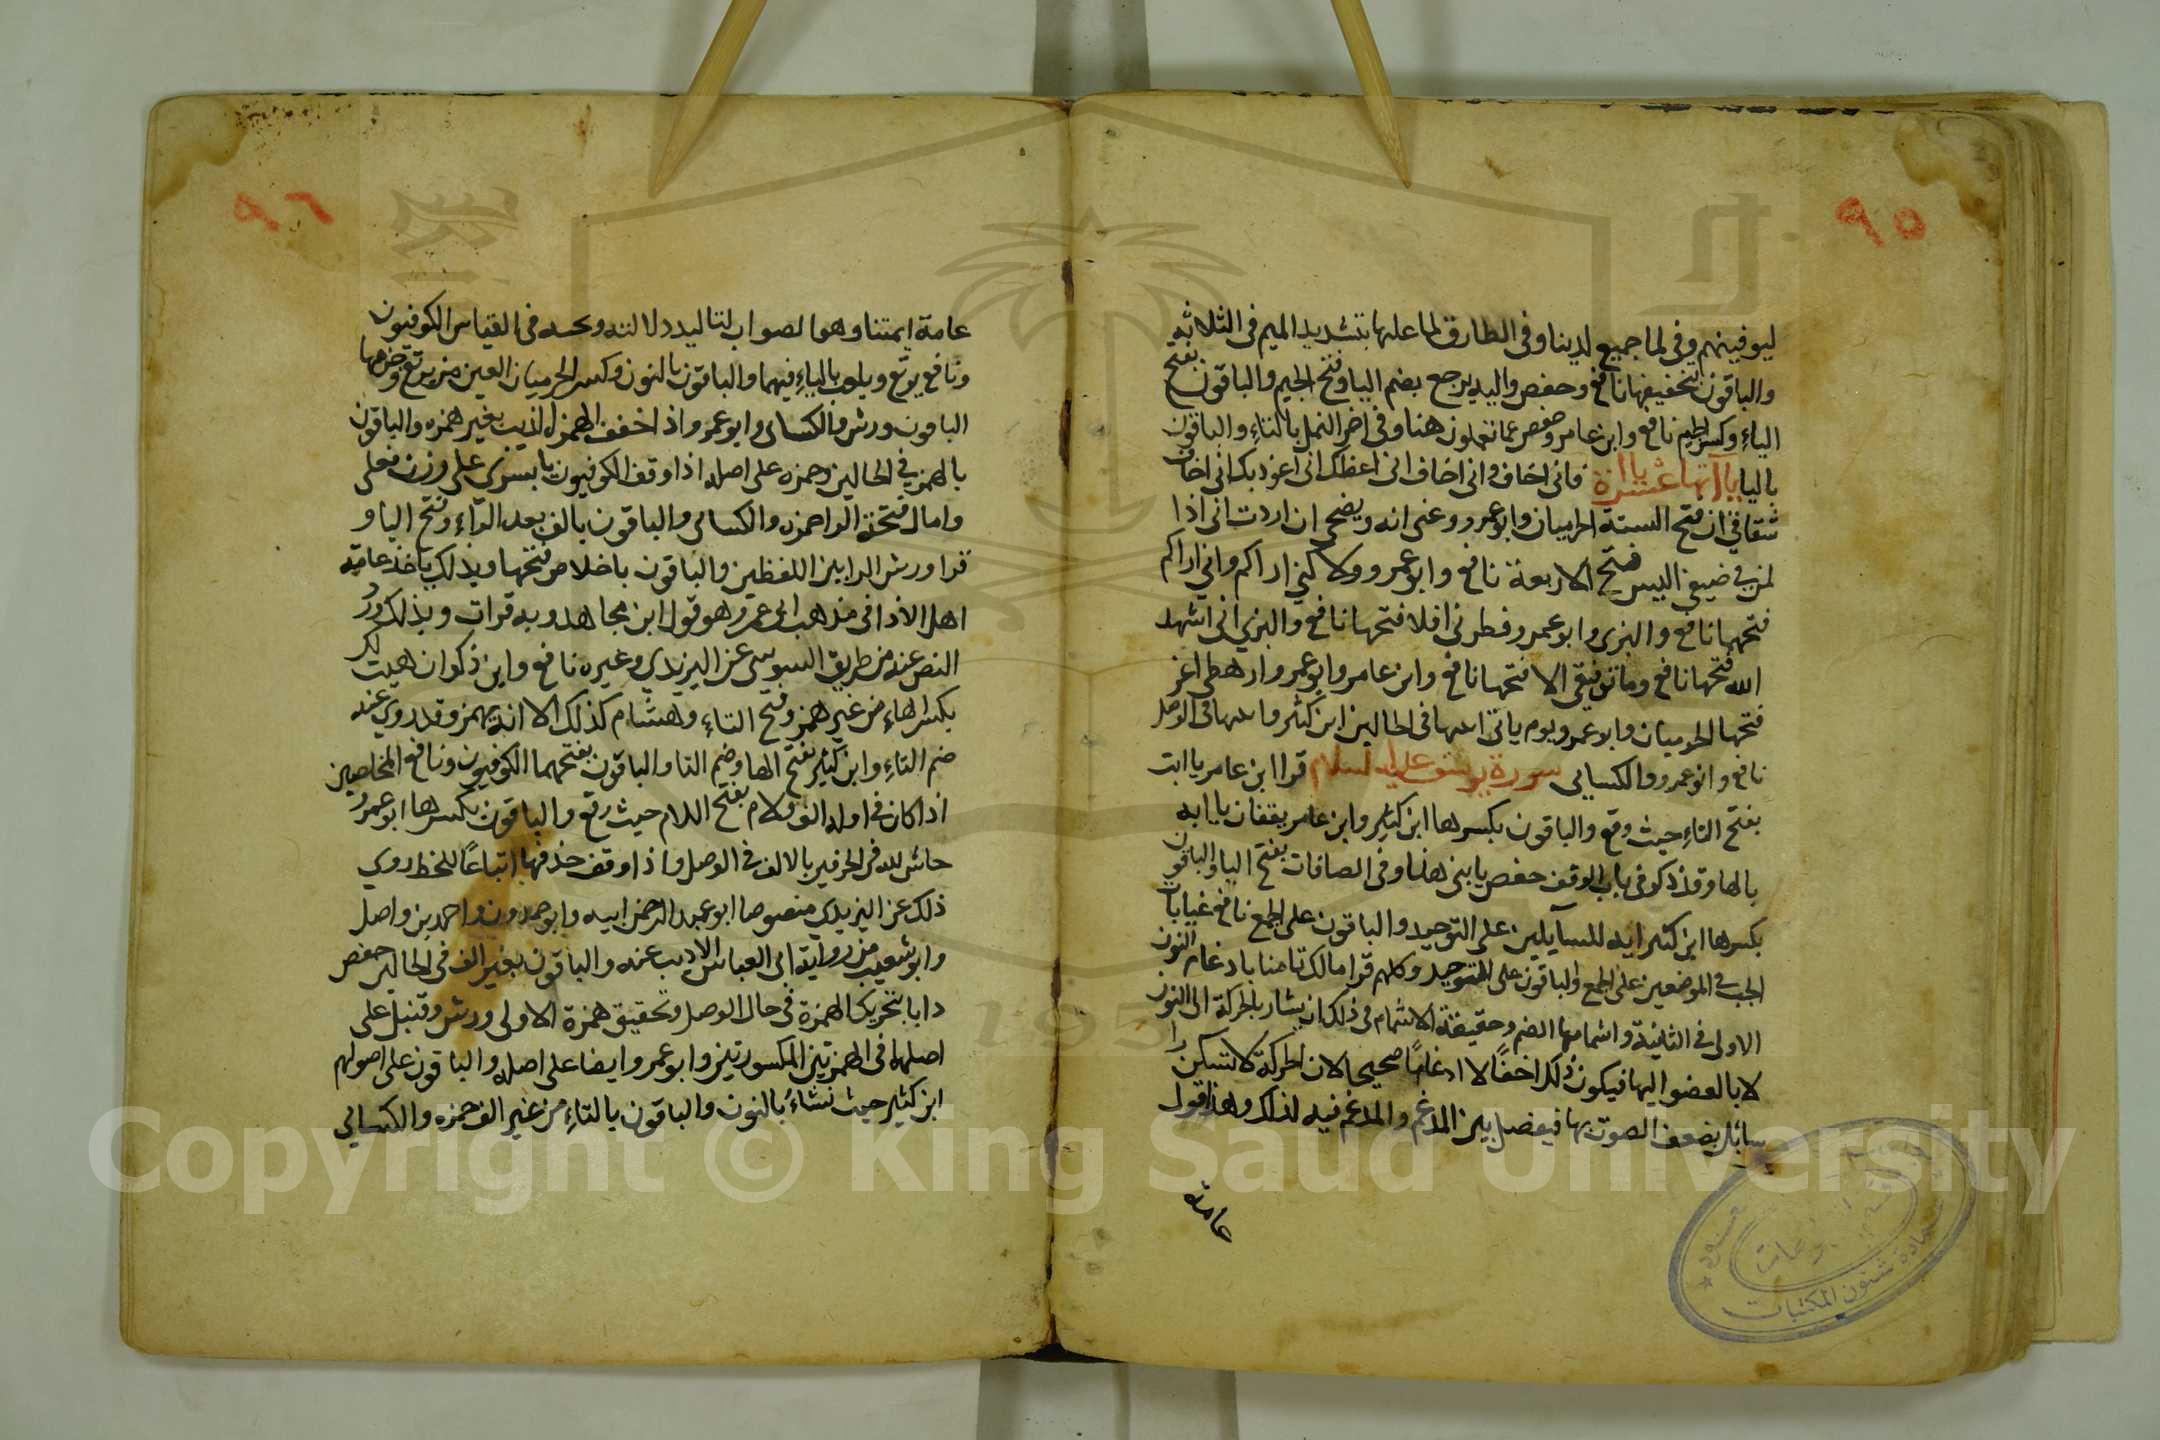 ٩٥
ليوفينهم وفى لما جميع لدينا وفى الطارق لما عليها بتشديد الميم فى الثلاثه
والباقون بتخفيفها نافع وحفص واليه يرجع بضم اليا وفتح الجيم والباقون بفتح
الياء وكسر الجيم نافع وابن عامر وحفص عما تعملون هنا وفى اخر النمل بالتاء والباقون
باليا ياآتها عشرة فانى اخاف وانى اخاف انى اعظك انى اعوذ بك انى اخاف
شقاقى ان فتح الستة الحرميان وابو عمرو وعنى انه ونصحى ان اردت انى اذا
لمن فى ضيفى اليس فتح الاربعة نافع وابو عمرو ولاكنى اراكم وانى اراكم
فتحهما نافع والبزى وابو عمرو فطرنى افلا فتحها نافع والبزي انى اشهد
الله فتحها نافع وما توفيقى الا فتحها نافع وابن عامر وابو عمرو ارهطى اعز
فتحها الحرميان وابو عمرو ويوم ياتى اثبتها فى الحالين ابن كثير واثبتها فى الوصل
نافع وابو عمرو والكسايى سورة يوسف عليه السلام قرا ابن عامر يا ابت
بفتح التاء حيث وقع والباقون بكسرها ابن كثير وابن عامر يقفان يا ابه
بالها وقد ذكر فى باب الوقف حفص يا بنى هنا وفى الصافات بفتح اليا والباقون
بكسرها ابن كثير ايه للسايلين على التوحيد والباقون على الجمع نافع غيابات
الجب فى الموضعين على الجمع والباقون على التوحيد وكلهم قرا مالك تامنا بادغام النون
الاولى فى الثانية واشمامها الضم وحقيقة الاشمام فى ذلك ان يشار بالحركة الى النون
لا بالعضو اليها فيكون ذلك اخفًا لا ادغامًا صحيحا لان الحركة لا تسكن را
سابل يضعف الصوت بها فيفصل بين المدغم والمدغم فيه لذلك وهذا قول
عامة
٩٦
عامة ايمتنا وهو الصواب لتاكيد دلالته وصحته فى القياس الكوفيون
ونافع يرتع ويلعب بالياء فيهما والباقون بالنون وكسر الحرميان العين من يرتع وجزمها
الباقون ورش والكساى وابو عمرو اذا خفف الهمز الذيب بغير همزه والباقون
بالهمز فى الحالين وحمزه على اصله اذا وقف الكوفيون يا بشرى على وزن فعلى
وامال فتحة الرا حمزه والكساى والباقون بالف بعد الرّاء وفتح اليا و
قرا ورش الرا بين اللفظين والباقون باخلاص فتحها وبذلك ياخذ عامّه
اهل الادا فى مذهب ابى عمرو وهو قول ابن مجاهد وبه قرات وبذلك ورد
النص عنه من طريق السوسى عن اليزيدي وغيره نافع وابن ذكوان هيت لك
بكسر الهاء من غير همز وفتح التاء وهشام كذلك الا انه يهمز وقد روي عنه
ضم التاء وابن كثير بفتح الها وضم التا والباقون بفتحهما الكوفيون ونافع المخلصين
اذا كان فى اوله الف ولام بفتح اللام حيث وقع والباقون بكسرها ابو عمرو
حاش لله فى الحرفين بالالف فى الوصل واذا وقف حذفها اتباعًا للخط روي
ذلك عن اليزيدي منصوصا ابو عبد الرحمن ابنه وابو حمدون واحمد بن واصل
وابو شعيب من رواية ابى العباس الاديب عنه والباقون بغير الف فى الحالين حفص
دابا بتحريك الهمزة فى حال الوصل وتحقيق همزة الاولى ورش وقنبل على
اصلهما فى الهمزتين المكسورتين وابو عمرو وايضا على اصله والباقون على اصولهم
ابن كثير حيث نشاءُ بالنون والباقون بالتاء من غير الف حمزه والكسايى
عمادة شئون المكتبات
Copyright © King Saud University